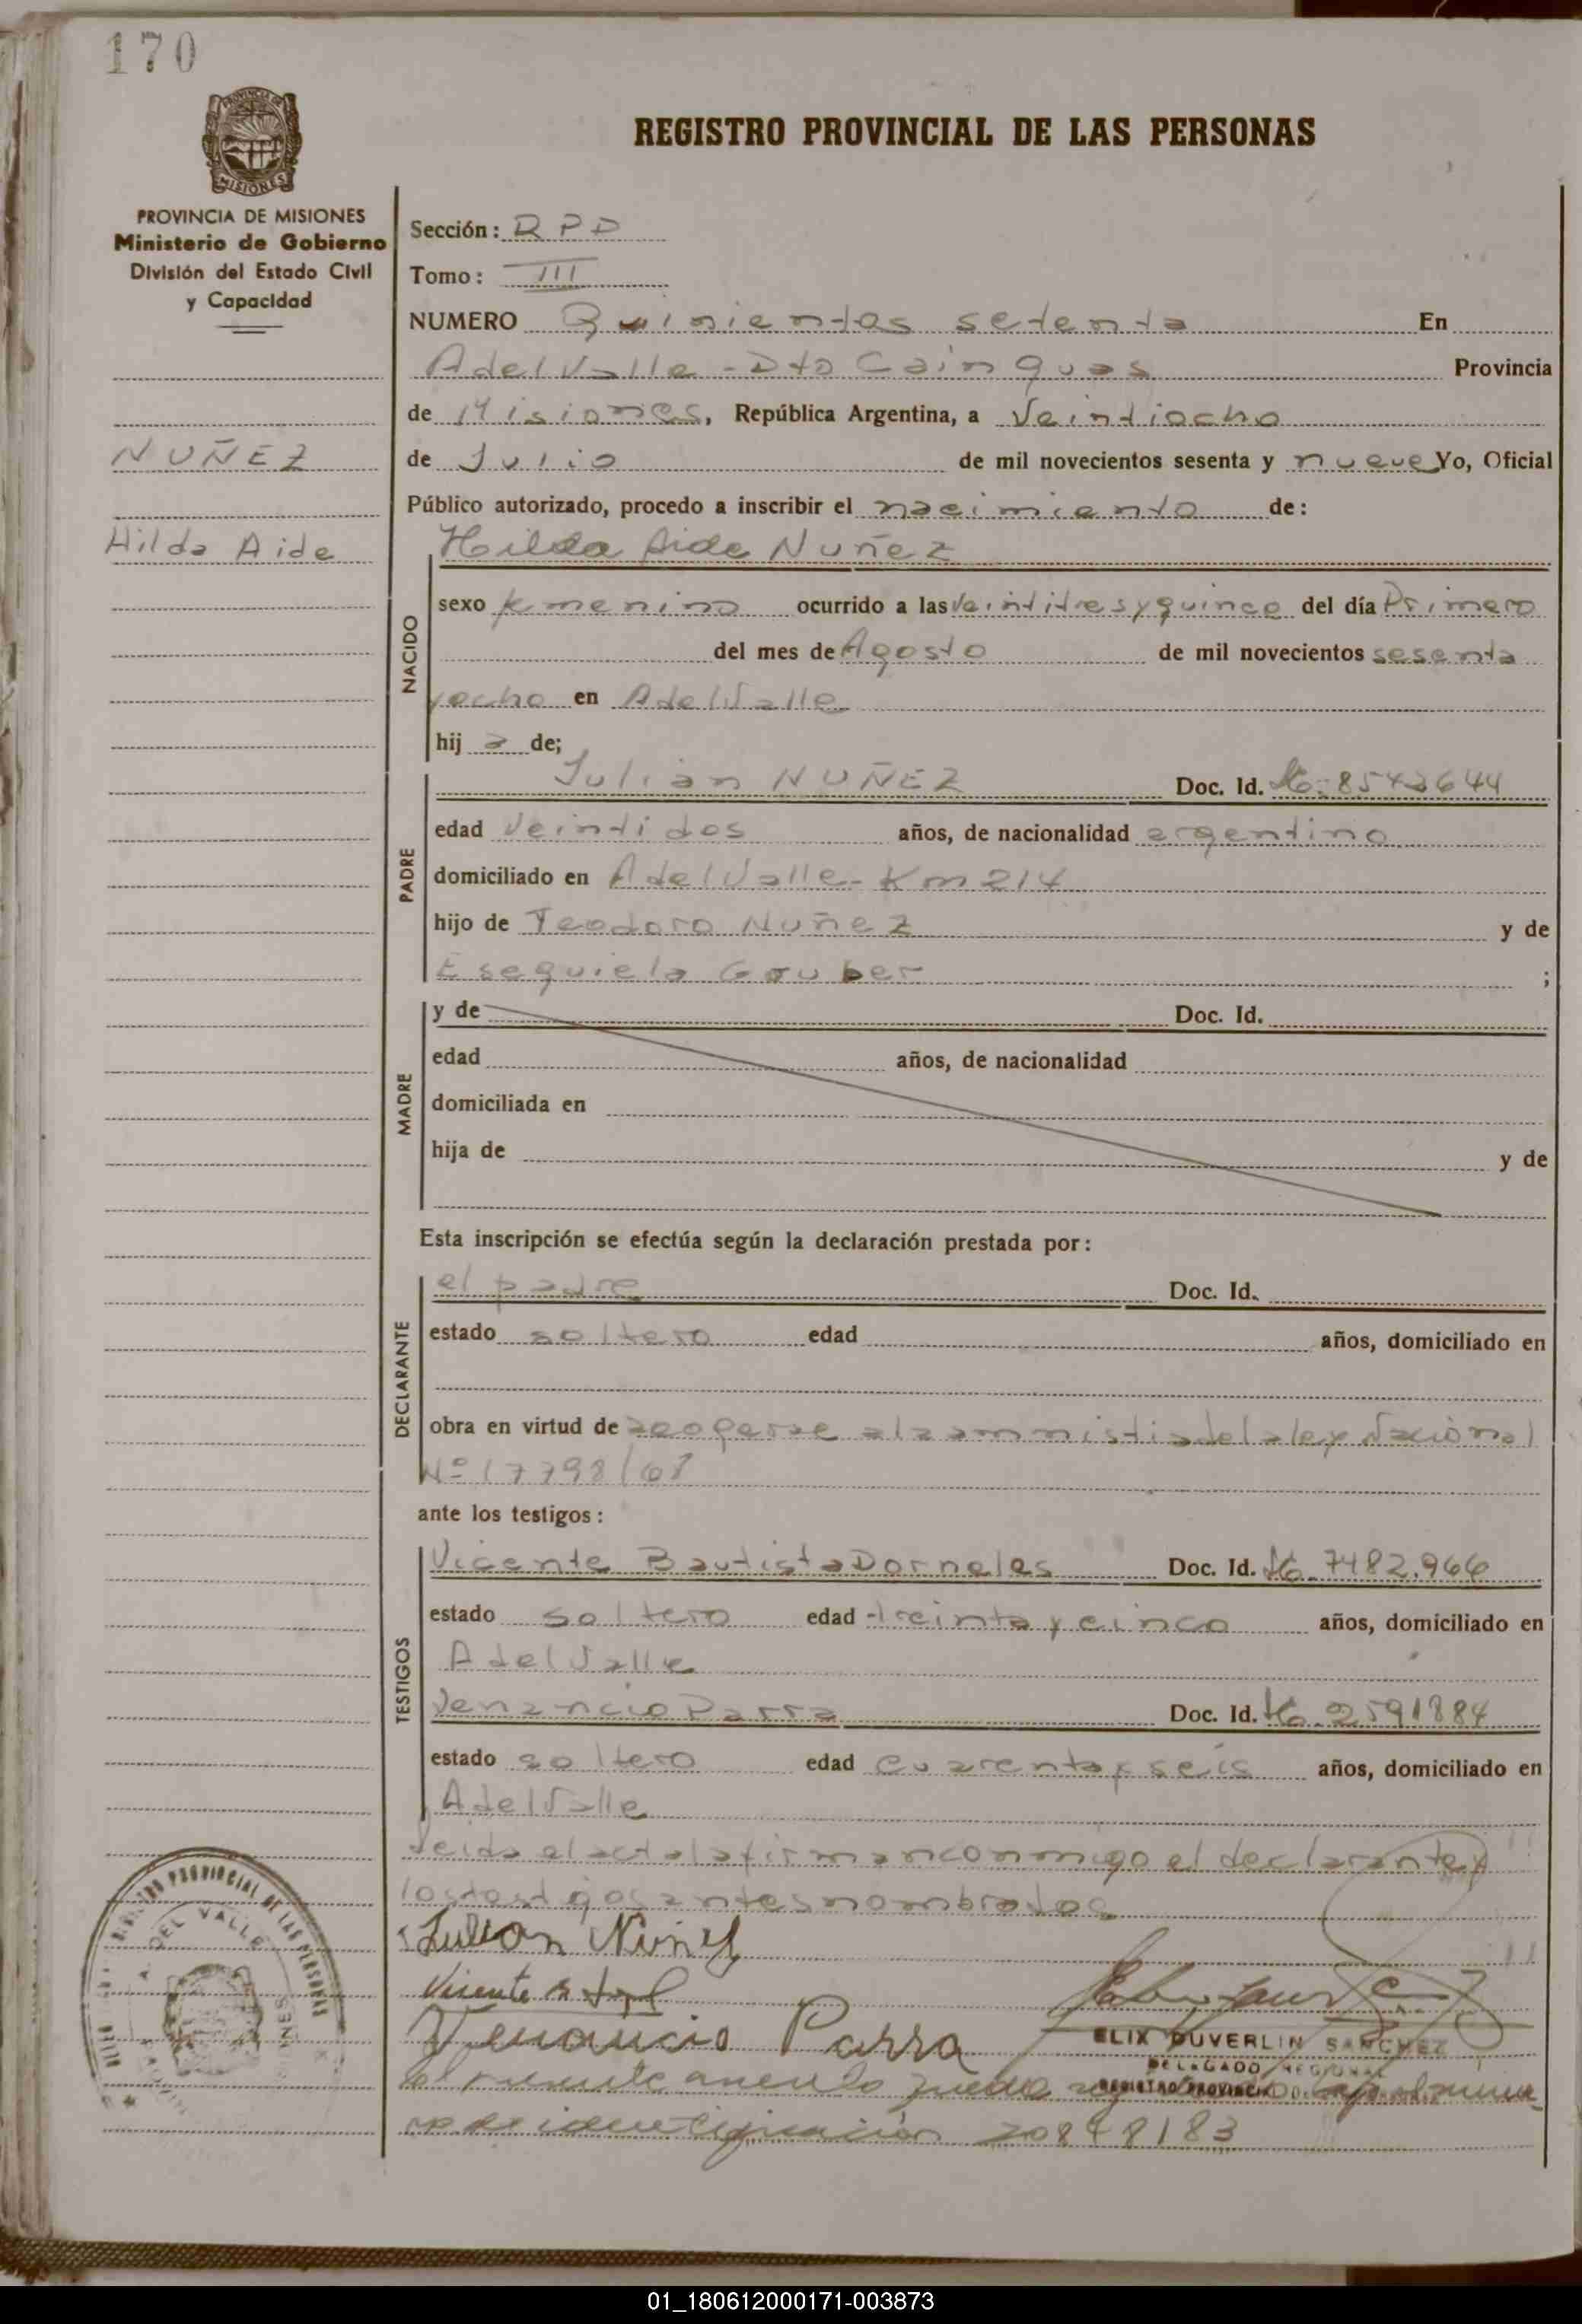 170
PROVINCIA DE MISIONES
MISIONES
PROVINCIA DE MISIONES
Ministerio de Gobierno
División del Estado Civil
y Capacidad
NUÑEZ
Hilda Aide
REGISTRO PROVINCIAL DE LAS PERSONAS
Sección: RPD
Tomo: III
NUMERO Quinientos setenta En
A del Valle - Dto Cainguas Provincia
de Misiones, República Argentina, a Veintiocho
de Julio de mil novecientos sesenta y nueve Yo, Oficial
Público autorizado, procedo a inscribir el nacimiento de:
Hilda Aide Nuñez
NACIDO
sexo femenino ocurrido a las veintitres y quince del día Primero
del mes de Agosto de mil novecientos sesenta
y ocho en A del Valle
hij a de;
PADRE
Julian NUÑEZ Doc. Id. 8543644
edad veintidos años, de nacionalidad argentino
domiciliado en A del Valle - Km 214
hijo de Teodoro Nuñez y de
Esequiela Gouber ;
MADRE
y de Doc. Id.
edad años, de nacionalidad
domiciliada en
hija de y de
Esta inscripción se efectúa según la declaración prestada por:
DECLARANTE
el padre Doc. Id.
estado soltero edad años, domiciliado en
obra en virtud de acogerse a la ammistia de la ley Nacional
Nº 17798/68
ante los testigos:
TESTIGOS
Vicente Bautista Dorneles Doc. Id. 7482.966
estado soltero edad treinta y cinco años, domiciliado en
A del Valle
Venancio Parra Doc. Id. 2591884
estado soltero edad cuarenta y seis años, domiciliado en
A del Valle
Leida el acta la firman conmigo el declarante y
los testigos antes nombrados
Julian Nuñez
Vicente
Venancio Parra
ELIX DUVERLIN SANCHEZ
DELEGADO REGIONAL
REGISTRO PROVINCIAL DE LAS PERSONAS
REGISTRO PROVINCIAL DE LAS PERSONAS
A. DEL VALLE
MISIONES
de identificación 20848183
01_180612000171-003873